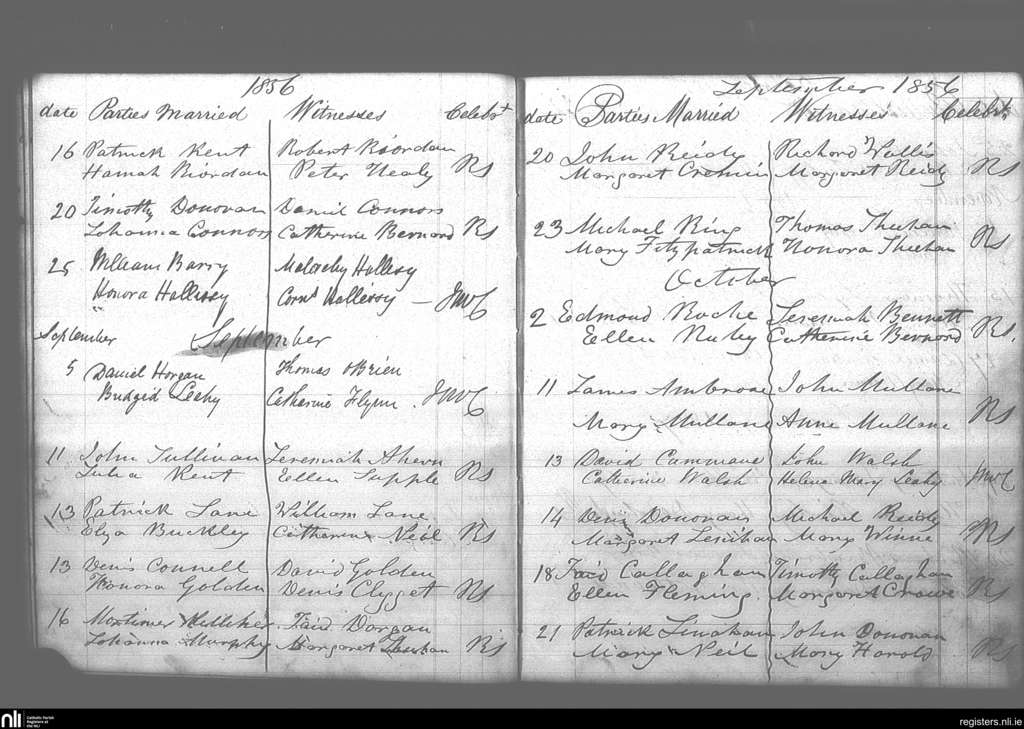 1856
date Parties Married Witnesses Celebrt
16 Patrick Kent Robert Riordan
Hanah Riordan Peter Healy RS
20 Timothy Donovan Daniel Connors
Johanna Connors Catherine Bernard RS
25 William Barry Malachy Hallisy
Honora Hallisey Corns Hallissy — JMC
September September
5 Daniel Horgan Thomas OBrien
Bridgid Leahy Catherine Flynn. JMC
11 John Sullivan Jeremiah Ahern
Julia Kent Ellen Supple RS
13 Patrick Lane William Lane
Elza Buckley Catherine Neil RS
13 Denis Connell David Golden
Honora Golden Denis Clygget RS
16 Mortimer Dorgan
Johanna Murphy Margaret RS
September 1856
date Parties Married Witnesses Celebrt
20 John Reidy Richard Wallis
Margaret Cremin Margaret Reidy RS
23 Michael Ring Thomas Sheehan
Mary Fitzpatrick Honora Sheehan RS
October
2 Edmond Roche Jeremiah Bennett
Ellen Ruby Catherine Bernard RS.
11 James Ambrose John Mullane
Mary Mullane Anne Mullane RS
13 David Cammane John Walsh
Catherine Walsh Helena Mary Leahy JMC
14 Denis Donovan Michael Reidy
Margaret Mary Winne RS
18 Callaghan Timothy Callaghan
Ellen Fleming. Margaret Crowe RS
21 Patrick Linahan John Donovan
Mary Neil Mary Harold RS
nli Catholic Parish
Registers at
the NLI
registers.nli.ie